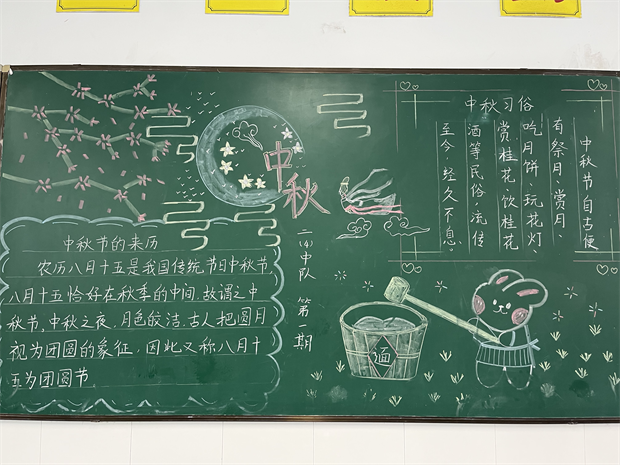 中秋节的来历
农历八月十五是我国传统节日中秋节
八月十五恰好在秋季的中间,故谓之中
秋节,中秋之夜,月色皎洁,古人把圆月
视为团圆的象征,因此又称八月十
五为团圆节
中秋
二(4)中队 第一期
中秋习俗
中秋节自古便
有祭月、赏月、
吃月饼、玩花灯、
赏桂花、饮桂花
酒等民俗,流传
至今,经久不息。